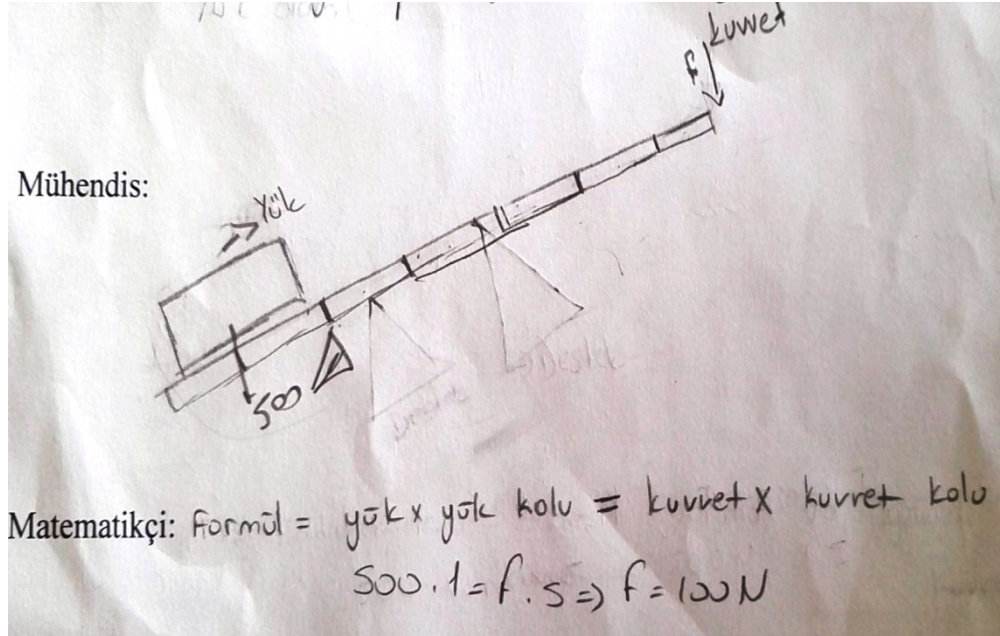 kuvvet
f
Mühendis:
Yük
500
Destek
Destek
Matematikçi: Formül = yük x yük kolu = kuvvet x kuvvet kolu
500.1=f.5=> f=100N